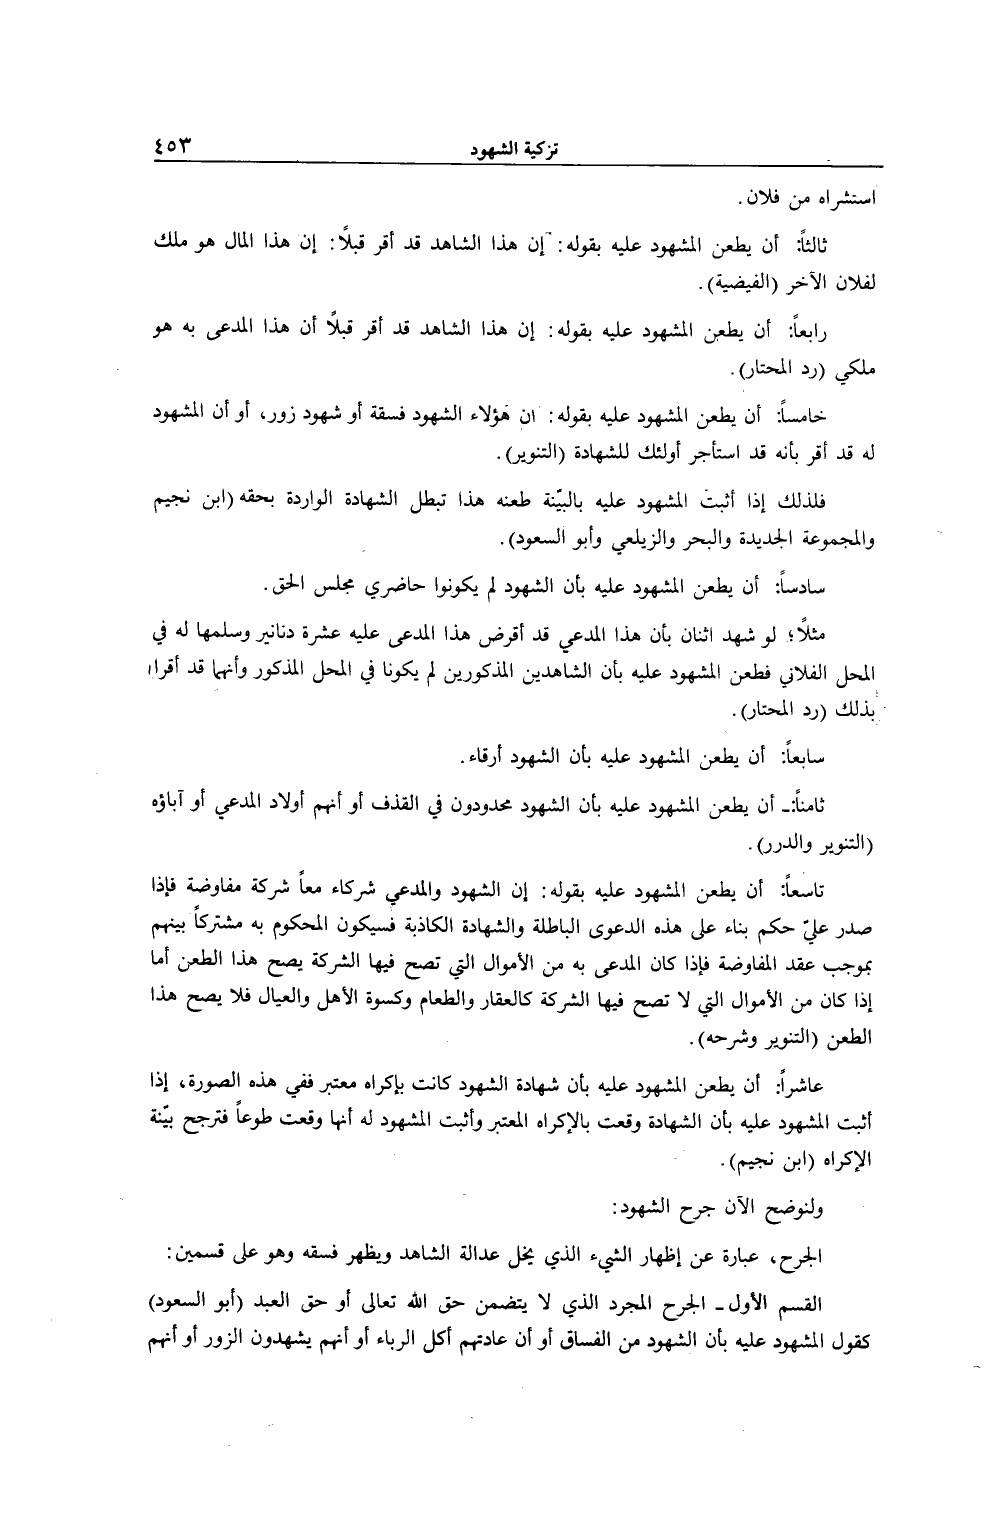 تزكية الشهود ٤٥٣
استشراه من فلان.
ثالثاً: أن يطعن المشهود عليه بقوله: إن هذا الشاهد قد أقر قبلًا: إن هذا المال هو ملك
لفلان الآخر (الفيضية).
رابعاً: أن يطعن المشهود عليه بقوله: إن هذا الشاهد قد أقر قبلًا أن هذا المدعى به هو
ملكي (رد المحتار).
خامساً: أن يطعن المشهود عليه بقوله: ان هؤلاء الشهود فسقة أو شهود زور، أو أن المشهود
له قد أقر بأنه قد استأجر أولئك للشهادة (التنوير).
فلذلك إذا أثبت المشهود عليه بالبيّنة طعنه هذا تبطل الشهادة الواردة بحقه (ابن نجيم
والمجموعة الجديدة والبحر والزيلعي وأبو السعود).
سادساً: أن يطعن المشهود عليه بأن الشهود لم يكونوا حاضري مجلس الحق.
مثلًا؛ لو شهد اثنان بأن هذا المدعي قد أقرض هذا المدعى عليه عشرة دنانير وسلمها له في
المحل الفلاني فطعن المشهود عليه بأن الشاهدين المذكورين لم يكونا في المحل المذكور وأنهما قد أقرا
بذلك (رد المحتار).
سابعاً: أن يطعن المشهود عليه بأن الشهود أرقاء.
ثامناً:ـ أن يطعن المشهود عليه بأن الشهود محدودون في القذف أو أنهم أولاد المدعي أو آباؤه
(التنوير والدرر).
تاسعاً: أن يطعن المشهود عليه بقوله: إن الشهود والمدعي شركاء معاً شركة مفاوضة فإذا
صدر عليّ حكم بناء على هذه الدعوى الباطلة والشهادة الكاذبة فسيكون المحكوم به مشتركاً بينهم
بموجب عقد المفاوضة فإذا كان المدعى به من الأموال التي تصح فيها الشركة يصح هذا الطعن أما
إذا كان من الأموال التي لا تصح فيها الشركة كالعقار والطعام وكسوة الأهل والعيال فلا يصح هذا
الطعن (التنوير وشرحه).
عاشراً: أن يطعن المشهود عليه بأن شهادة الشهود كانت بإكراه معتبر ففي هذه الصورة، إذا
أثبت المشهود عليه بأن الشهادة وقعت بالإكراه المعتبر وأثبت المشهود له أنها وقعت طوعاً فترجح بيّنة
الإكراه (ابن نجيم).
ولنوضح الآن جرح الشهود:
الجرح، عبارة عن إظهار الشيء الذي يخل عدالة الشاهد ويظهر فسقه وهو على قسمين:
القسم الأول ـ الجرح المجرد الذي لا يتضمن حق الله تعالى أو حق العبد (أبو السعود)
كقول المشهود عليه بأن الشهود من الفساق أو أن عادتهم أكل الرباء أو أنهم يشهدون الزور أو أنهم